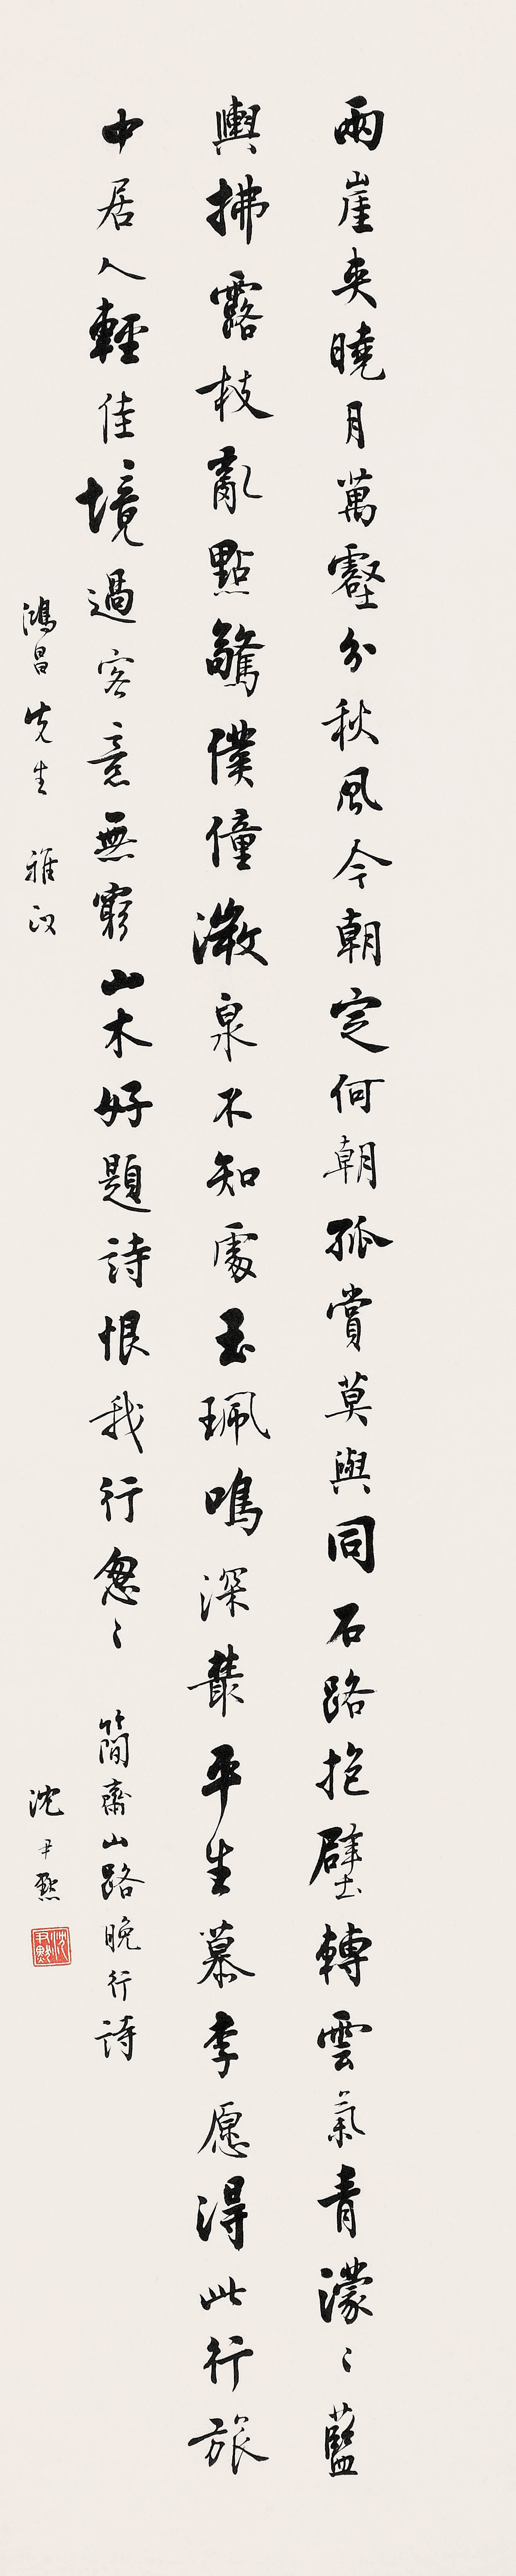 兩崖夾曉月萬壑分秋風今朝定何朝孤賞莫與同石路抱壁轉雲氣青濛〻藍
輿拂露枝亂點驚僕僮激泉不知處玉珮鳴深叢平生慕李愿得此行旅
中居人輕佳境過客意無窮山木好題詩恨我行怱〻 簡齋山路晚行詩
鴻昌先生 雅政
沈尹默
沈尹默